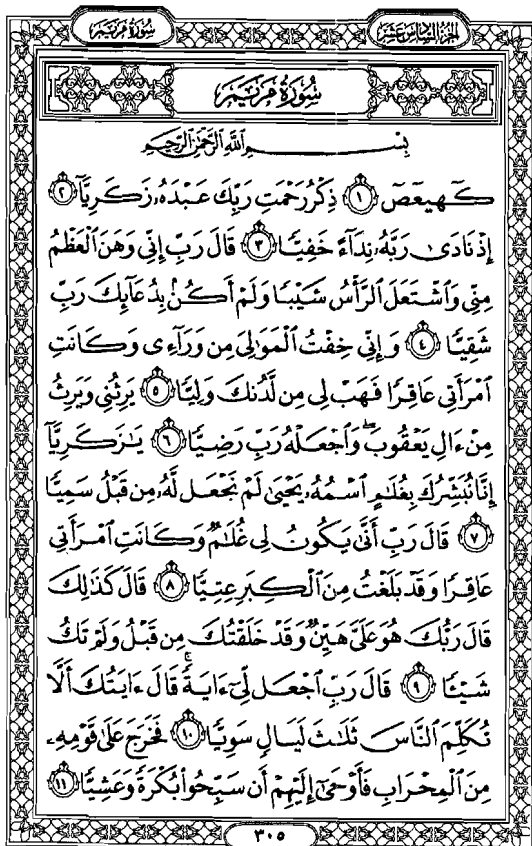 سُورَةُ مَرْيَمَ
الجزء السادس عشر
سُورَةُ مَرْيَمَ
بِسْمِ اللَّهِ الرَّحْمَٰنِ الرَّحِيمِ
كٓهيعٓصٓ ١ ذِكْرُ رَحْمَتِ رَبِّكَ عَبْدَهُۥ زَكَرِيَّآ ٢
إِذْ نَادَىٰ رَبَّهُۥ نِدَآءً خَفِيًّا ٣ قَالَ رَبِّ إِنِّى وَهَنَ ٱلْعَظْمُ
مِنِّى وَٱشْتَعَلَ ٱلرَّأْسُ شَيْبًا وَلَمْ أَكُنۢ بِدُعَآئِكَ رَبِّ
شَقِيًّا ٤ وَإِنِّى خِفْتُ ٱلْمَوَٰلِىَ مِن وَرَآءِى وَكَانَتِ
ٱمْرَأَتِى عَاقِرًا فَهَبْ لِى مِن لَّدُنكَ وَلِيًّا ٥ يَرِثُنِى وَيَرِثُ
مِنْ ءَالِ يَعْقُوبَ ۖ وَٱجْعَلْهُ رَبِّ رَضِيًّا ٦ يَٰزَكَرِيَّآ
إِنَّا نُبَشِّرُكَ بِغُلَٰمٍ ٱسْمُهُۥ يَحْيَىٰ لَمْ نَجْعَل لَّهُۥ مِن قَبْلُ سَمِيًّا
٧ قَالَ رَبِّ أَنَّىٰ يَكُونُ لِى غُلَٰمٌ وَكَانَتِ ٱمْرَأَتِى
عَاقِرًا وَقَدْ بَلَغْتُ مِنَ ٱلْكِبَرِ عِتِيًّا ٨ قَالَ كَذَٰلِكَ
قَالَ رَبُّكَ هُوَ عَلَىَّ هَيِّنٌ وَقَدْ خَلَقْتُكَ مِن قَبْلُ وَلَمْ تَكُ
شَيْـًٔا ٩ قَالَ رَبِّ ٱجْعَل لِّىٓ ءَايَةً ۚ قَالَ ءَايَتُكَ أَلَّا
تُكَلِّمَ ٱلنَّاسَ ثَلَٰثَ لَيَالٍ سَوِيًّا ١٠ فَخَرَجَ عَلَىٰ قَوْمِهِۦ
مِنَ ٱلْمِحْرَابِ فَأَوْحَىٰٓ إِلَيْهِمْ أَن سَبِّحُوا۟ بُكْرَةً وَعَشِيًّا ١١
٣٠٥